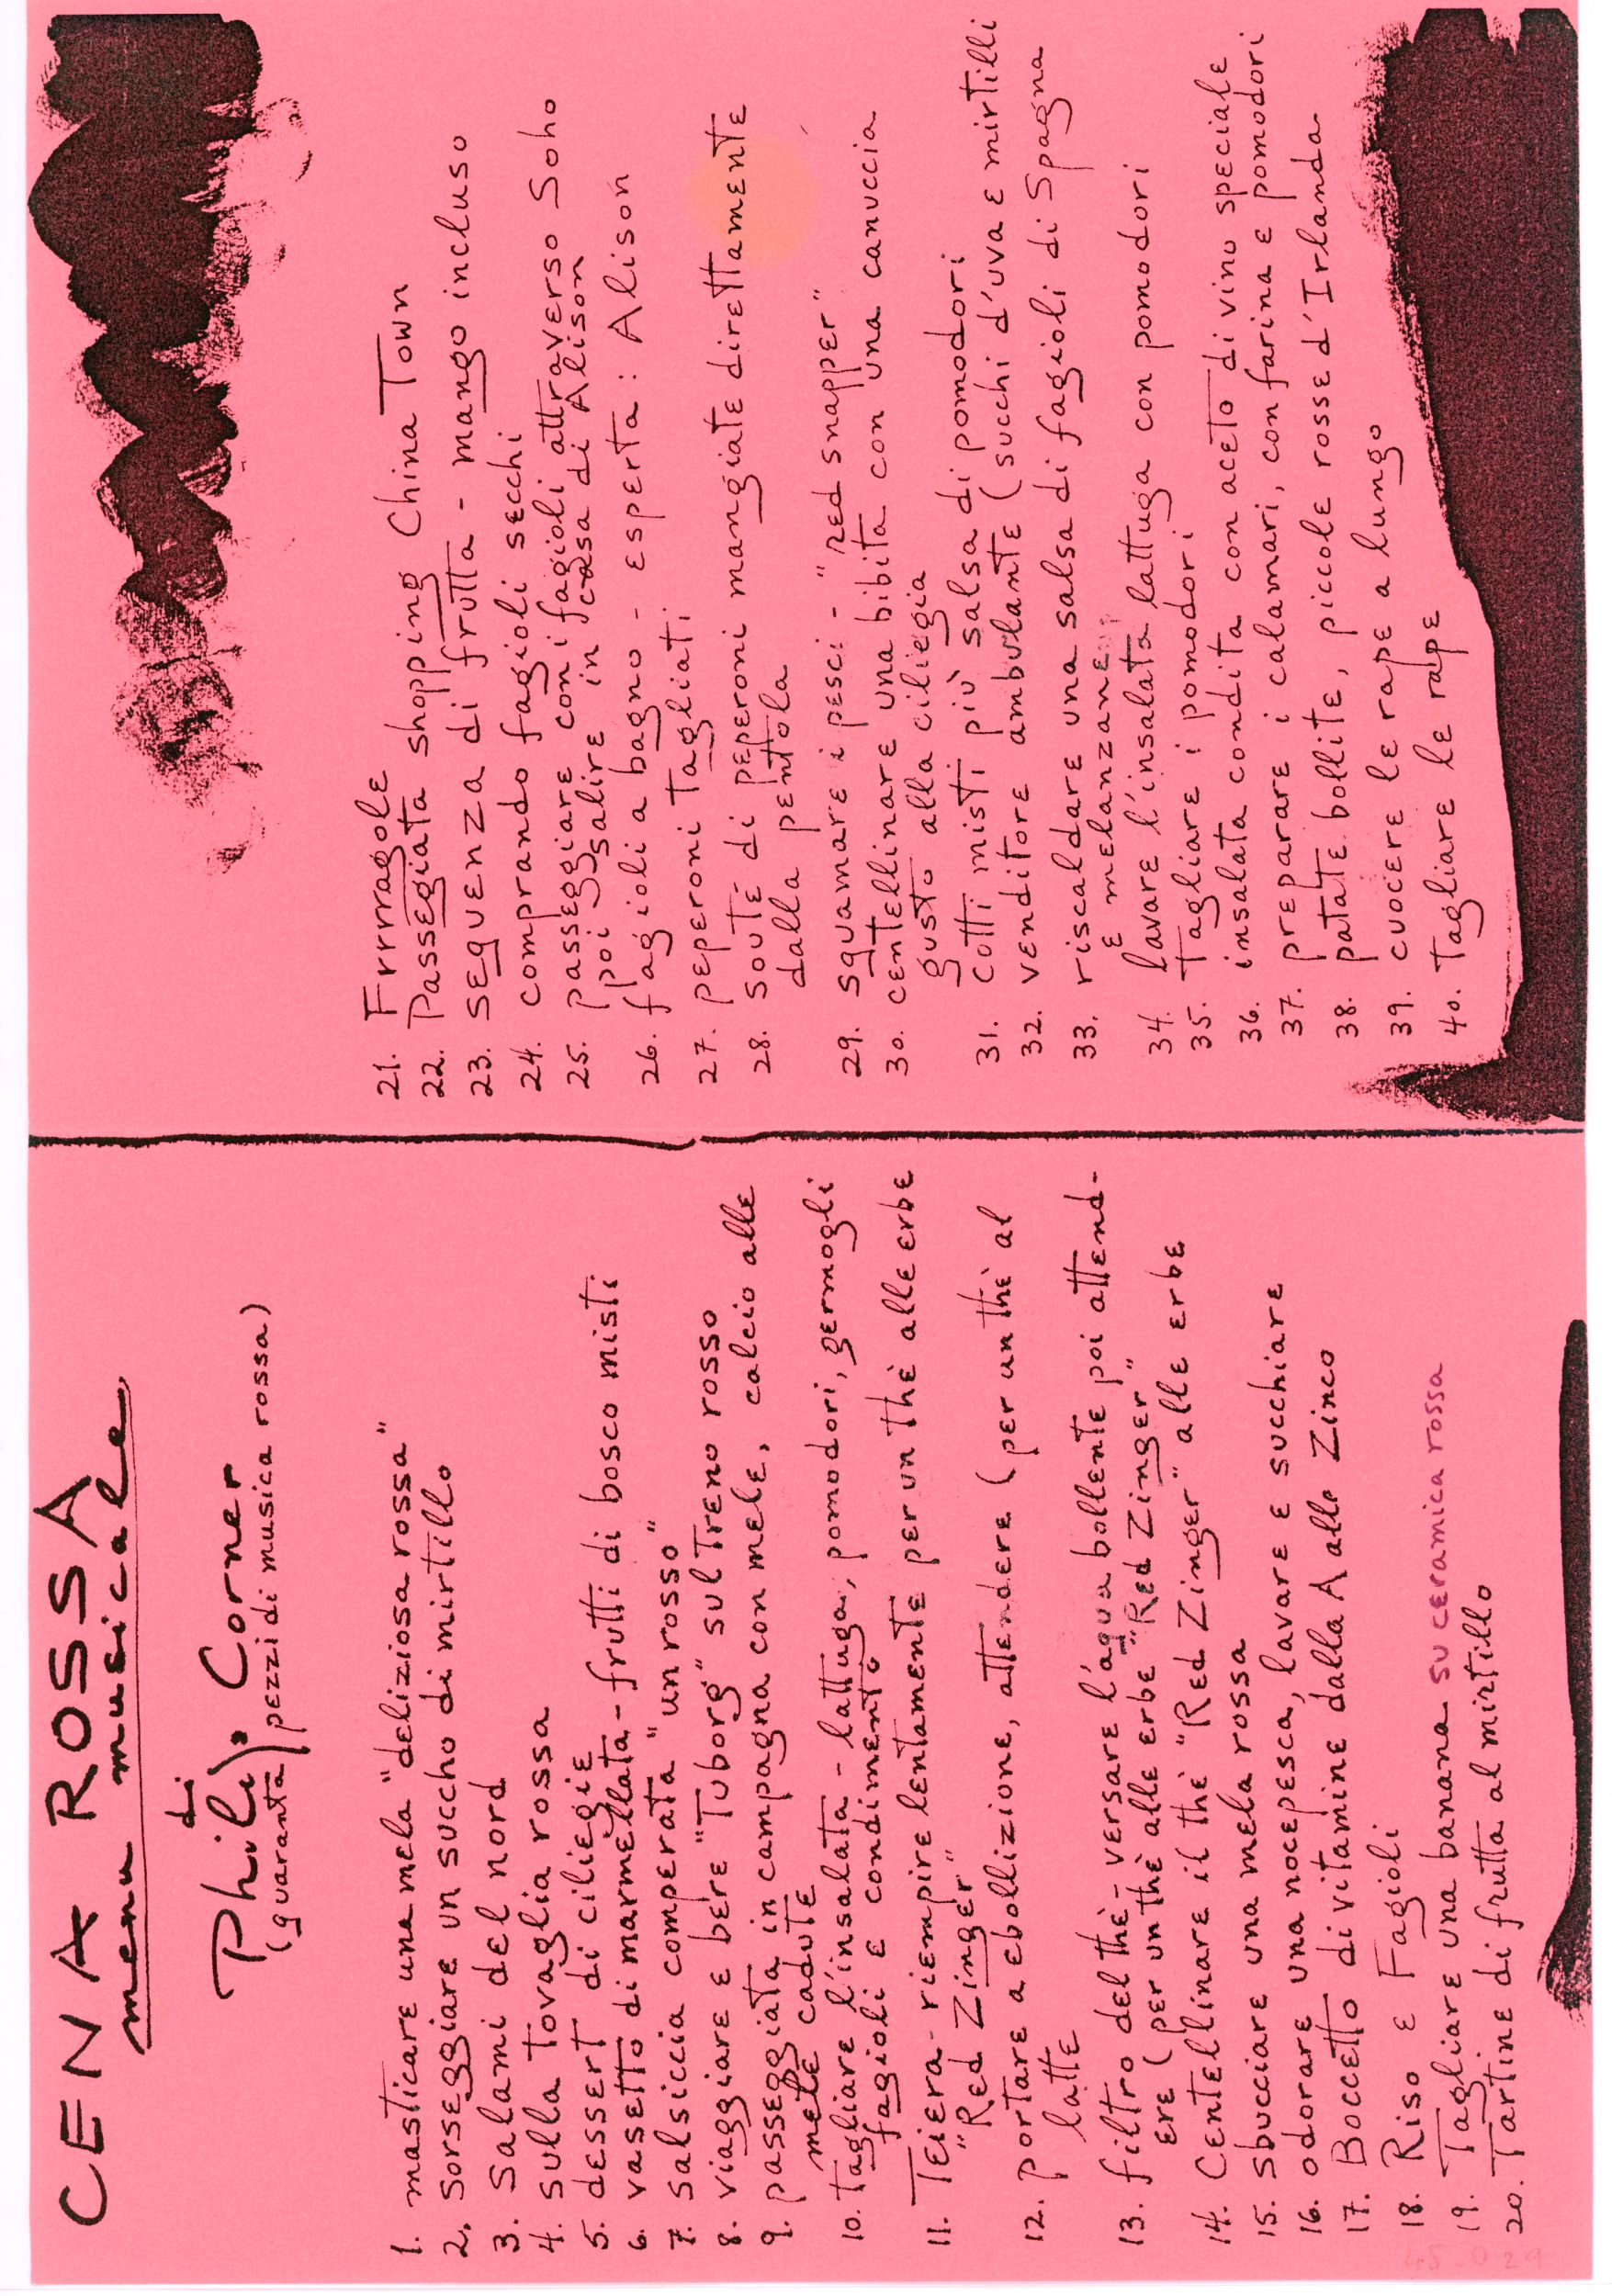 CENA ROSSA
menu musicale
di
Philip Corner
(quaranta pezzi di musica rossa)
1. masticare una mela "deliziosa rossa"
2. sorseggiare un succho di mirtillo
3. Salami del nord
4. sulla tovaglia rossa
5. dessert di ciliegie
6. vasetto di marmellata - frutti di bosco misti
7. salsiccia comperata "un rosso"
8. viaggiare e bere "Tuborg" sul Treno rosso
9. passeggiata in campagna con mele, calcio alle
mele cadute
10. Tagliare l'insalata - lattuga, pomodori, germogli
fagioli e condimento
11. Teiera - riempire lentamente per un thè alle erbe
"Red Zinger"
12. portare a ebollizione, attendere (per un thè al
latte
13. filtro del thè - versare l'aqua bollente poi attend-
ere (per un thè alle erbe "Red Zinger"
14. Centellinare il thè "Red Zinger" alle erbe
15. sbucciare una mela rossa
16. odorare una nocepesca, lavare e succhiare
17. Boccetto di vitamine dalla A allo Zinco
18. Riso e Fagioli
19. Tagliare una banana su ceramica rossa
20. Tartine di frutta al mirtillo
45-029
21. Frrrragole
22. Passegiata shopping China Town
23. sequenza di frutta - mango incluso
24. comprando fagioli secchi
25. passeggiare con i fagioli attraverso Soho
poi salire in casa di Alison
26. fagioli a bagno - esperta: Alison
27. peperoni Tagliati
28. souté di peperoni mangiate direttamente
dalla pentola
29. squamare i pesci - "red snapper"
30. centellinare una bibita con una canuccia
gusto alla ciliegia
31. cotti misti più salsa di pomodori
32. venditore ambulante (succhi d'uva e mirtilli
33. riscaldare una salsa di fagioli di Spagna
e melanzane
34. lavare l'insalata lattuga con pomodori
35. Tagliare i pomodori
36. insalata condita con aceto di vino speciale
37. preparare i calamari, con farina e pomodori
38. patate bollite, piccole rosse d'Irlanda
39. cuocere le rape a lungo
40. Tagliare le rape